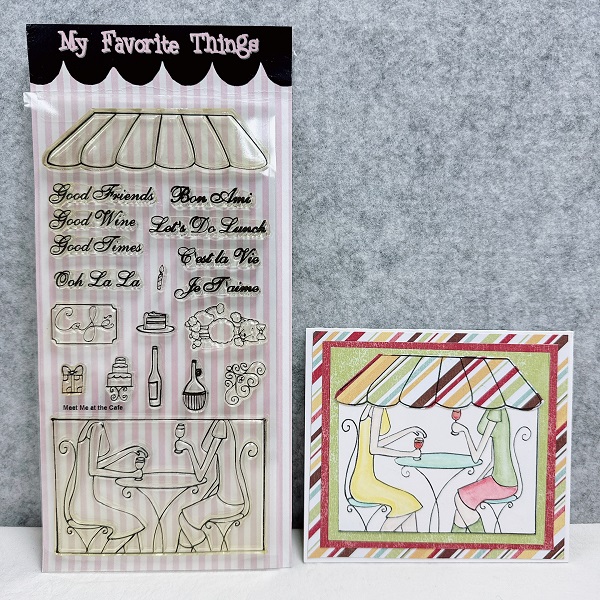 My Favorite Things
Good Friends
Good Wine
Good Times
Ooh La La
Bon Ami
Let's Do Lunch
C'est la Vie
Je T'aime
Café
Meet Me at the Cafe